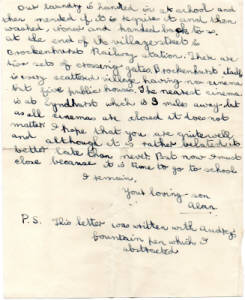 Our laundry is handed in at school and
then mended if it requires it and then
washed, ironed and handed back to us.
at the end of the village street is
Brockenhurst Railway station. There are
two sets of crossing gates. Brockenhurst
is a very scattered village having no cinema
but five public houses. The nearest cinema
is at Lyndhurst which is 4 miles away but
as all cinemas are closed it does not
matter. I hope that you are quite well
and although it is rather belated it is
better late than never. But now I must
close because it is time to go to school
I remain,
Your loving son
Alan.
P.S. This letter was written with Audrey's
fountain pen which I
abstracted